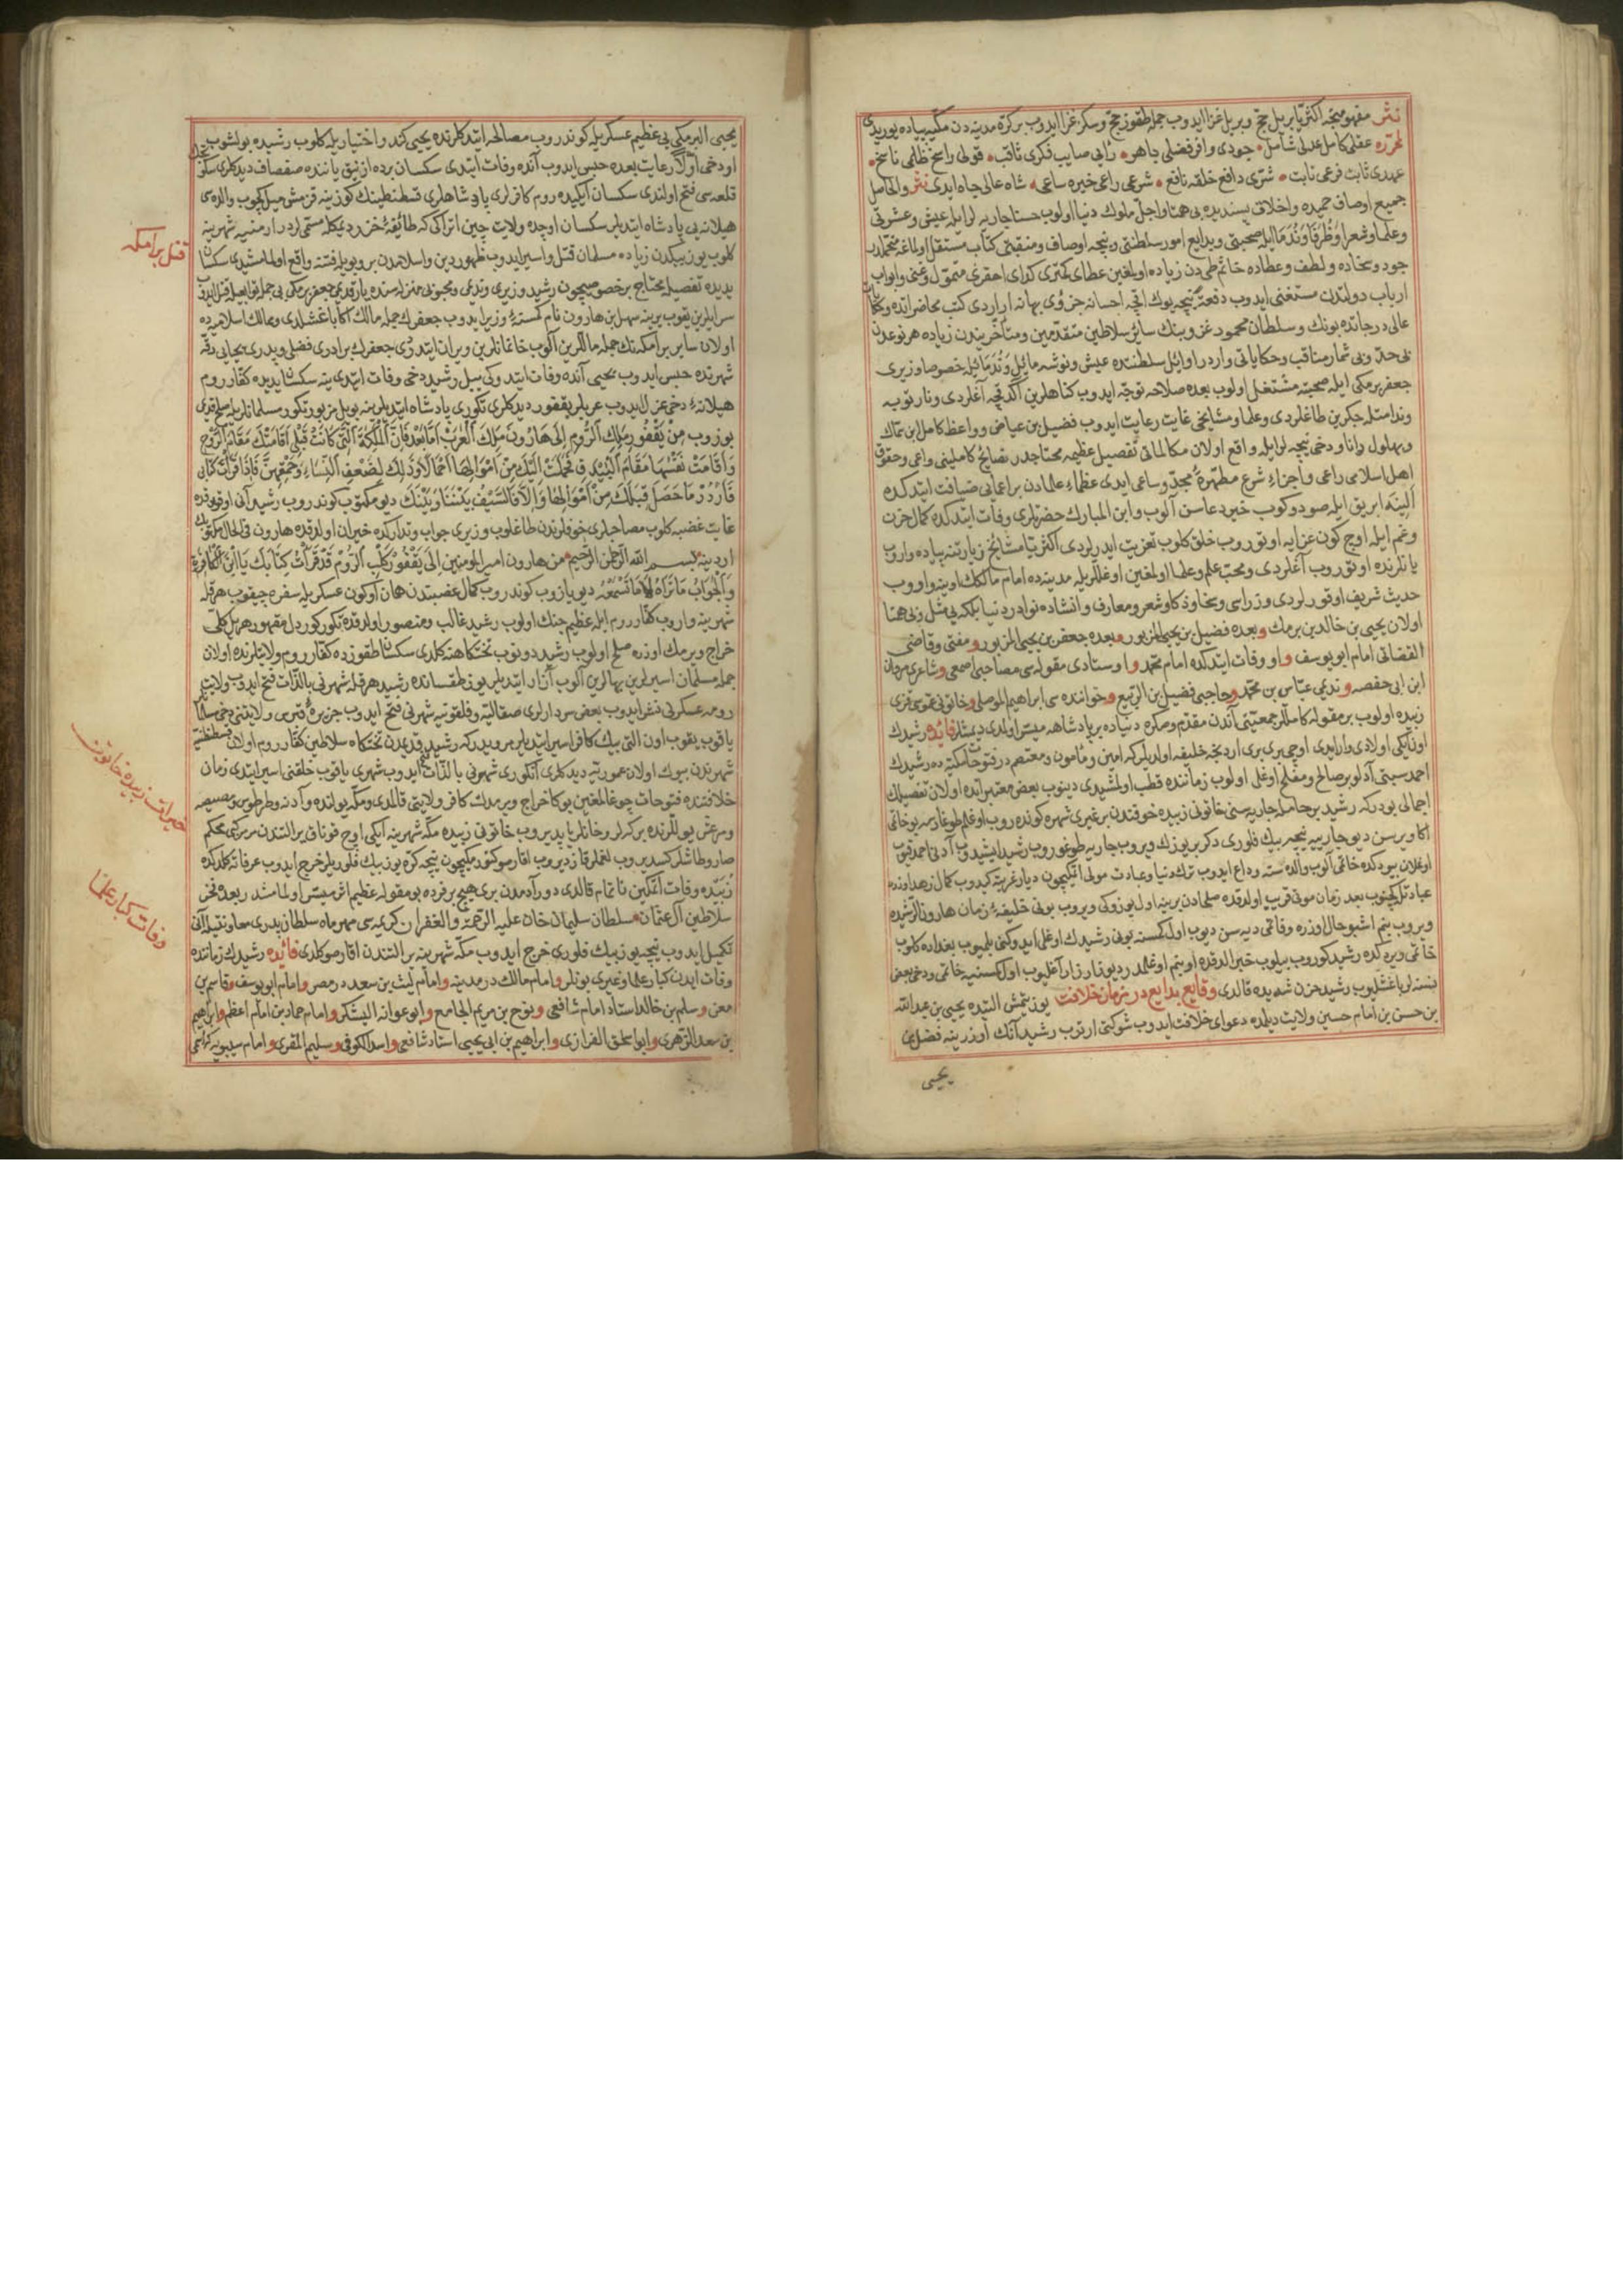 نثر مفهومنجه اكثريا بر ييل حج وبر ييل غزا ايدوب جمله طقوز حج وسكز غزا ايدوب بر كره مدينه دن مكيه پياده يوريدى
محرره عقلى كامل عدلى شامل جودى وافر فضلى باهر رأيى صايب فكرى ثاقب قولى راسخ ظلمى ناسخ
عهدى ثابت فرعى نابت شرى دافع خلقه نافع شرعى راعى خيره ساعى شاه عالى جاه ايدى نثر والحاصل
جميع اوصاف حميده واخلاق پسنديده بى همتا واجل ملوك دنيا اولوب حسنا جاريه لر ايله عيش وعشرتى
وعلما وشعرا وظرفا وندما ايله صحبتى وبدايع امور سلطنتى ونيجه اوصاف ومنقبتى كتاب مستقل اولماغه متحملدر
جود وسخاده ولطف وعطاده خاتم طى دن زياده اولمغين عطاى كمترى كداى احقرى متمول وغنى وابواب
ارباب دولتدن مستغنى ايدوب دفعة نيجه يوك اقچه احسانه جزوى بهانه ارار دى كتب محاضراتده وحكايات
عالى درجاتده بونك وسلطان محمود غزوينك ساير سلاطين متقدمين ومتأخريندن زياده هر نوعدن
بى حد وبى شمار مناقب وحكاياتى واردر اوائل سلطنتده عيش ونوشه مائل وندما ايله خصوصا وزيرى
جعفر برمكى ايله صحبته مشتغل اولوب بعده صلاحه توجه ايدوب كناهلرين اكدقچه آغلردى ونار توبه
وندامتله جكرين طاغلردى وعلما ومشايخى غايت رعايت ايدوب فضيل بن عياض وواعظ كامل ابن سماك
وبهلول دانا ودخى نيجه لر ايله واقع اولان مكالماتى تفصيل عظيمه محتاجدر نصايح كاملينى واعى وحقوق
اهل اسلامى راعى واجراء شرع مطهره مجد وساعى ايدى عظماء علمادن بر اعمايى ضيافت ايتدكده
الينه ابريق ايله صو دوكوب خير دعاسن آلوب وابن المبارك حضرتلرى وفات ايتدكده كمال حزن
وغم ايله اوچ كون عزايه اوتوروب خلق كلوب تعزيت ايدرلردى اكثريا مشايخ زيارتنه پياده واروب
يانلرنده اوتوروب آغلردى ومحب علم وعلما اولمغين اوغللريله مدينه ده امام مالكك اوينه واروب
حديث شريف اوقورلردى وزراسى وسخاوذكا وشعر ومعارف وانشاده نوادر دنيا بلكه بى مثل وبى همتا
اولان يحيى بن خالد بن برمك وبعده فضيل بن يحيى المزبور وبعده جعفر بن يحيى المزبور ومفتى وقاضى
القضاتى امام ابو يوسف واو وفات ايتدكده امام محمد واوستادى مقوله سى مصاحبى اصمعى وشاعرى مروان
ابن ابى حفصه ونديمى عباس بن محمد وحاجبى فضيل بن الربيع وخواننده سى ابراهيم الموصلى وخاتونى عموسى قزى
زبيده اولوب بر مقوله كاملر جمعيتى آندن مقدم وصكره دنياده بر پادشاهه ميسر اولمدى ديمشلر فائده رشيدك
اون ايكى اولادى وار ايدى اوچى برى برى اردنجه خليفه اولديلر كه امين ومأمون ومعتصم در فتوحات مكيه ده رشيدك
احمد سبتى آدلو بر صالح ومفلح اوغلى اولوب زماننده قطب اولمشيدى دينوب بعض معتبراتده اولان تفصيلك
اجمالى بودر كه رشيد بر حامله جاريه سنى خاتونى زبيده خوفندن بر غيرى شهره كوندروب اوغلم طوغارسه بو خاتمى
اكا ويرسن ديو جاريه يه نيجه بيك فلورى دكر بر يوزك ويروب جاريه طوغوروب رشيد ايشيدوب آدنى احمد قيوب
اوغلان بيودكده خاتمى آلوب والده سنه وداع ايدوب ترك دنيا وعبادت مولى ايتمكيچون ديار غربته كيدوب كمال زهد اوزره
عبادتله كچنوب بعد زمان موتى قريب اولدقده صلحادن برينه اول يوزوكى ويروب بونى خليفه زمان هارون الرشيده
ويروب يتم اشبو حال اوزره وفات ايتدى ديه سن ديوب اول كمسنه بونى رشيدك اوغلى ايدوكنى بلميوب بغداده كلوب
خاتمى ويردكده رشيد كوروب بيلوب خبر الدقده او بنم اوغلمدر ديو زار زار آغليوب اول كمسنيه خاتمى ودخى بعض
نسنه لر باغشليوب رشيد حزن شديده قالدى وقايع بدايع در زمان خلافت يوز يتمش التيده يحيى بن عبدالله
بن حسن بن امام حسين ولايت ديلمده دعواى خلافت ايدوب شوكتى ارتوب رشيد آنك اوزرينه فضل بن
يحيى
يحيى البرمكى يى عظيم عسكريله كوندروب مصالحه ايتدكلرنده يحيى كندو اختياريله كلوب رشيده بولشوب
اودخى اولا رعايت بعده حبس ايدوب آنده وفات ايتدى سكسان برده ازنيق ياننده صفصاف ديدكلرى
قلعه سى فتح اولندى سكسان ايكيده روم كافرلرى پادشاهلرى قسطنطينك كوزينه قزمش ميل چكوب والده سى
هيلانه يى پادشاه ايتديلر سكسان اوچده ولايت چين اتراكى كه طائفه خزر ديمكله مسمى لردر ارمنيه شهرينه
كلوب يوز بيكدن زياده مسلمان قتل واسير ايدوب ظهور دين واسلامدن برو بويله فتنه واقع اولمامشيدى سكسان
يديده تفصيله محتاج بر خصوصيچون رشيد وزيرى ونديمى ومحبوبى منزله سنده يار قديمى جعفر برمكى يى
سرايلرين يقوب يرينه سهل بن هارون نام كمسنه يى وزير ايدوب جعفرك جمله مالك اكا باغشلدى وممالك اسلاميه ده
اولان ساير برامكه نك جمله ماللرين آلوب خانمانلرين ويران ايتدردى جعفرك برادرى فضلى وپدرى يحيايى رقه
شهرنده حبس ايدوب يحيى آنده وفات ايتدى وكى ييل رشيد دخى وفات ايتدى ينه سكسان يديده كفار روم
هيلانه يى دخى عزل ايدوب عربلر يقفور ديدكلرى تكورى پادشاه ايتديلر ينه بو ييل مزبور تكور مسلمانلريله صلحى
بوزوب من يقفور ملك الروم الى هارون ملك العرب اما بعد فان الملكة التى كانت قبلى اقامتك مقام الرخ
واقامت نفسها مقام البيدق فحملت اليك من اموالها احمالا وذلك لضعف النساء وحمقهن فاذا قرأت كتابى
فاردد ما حصل قبلك من اموالها والا فالسيف بيننا وبينك ديو مكتوب كوندروب رشيد آنى اوقودقده
غايت غضبه كلوب مصاحبلرى خوفلرندن طاغلوب وزيرى جواب وتداركده حيران اولدقده هارون فى الحال مكتوبك
اردينه بسم الله الرحمن الرحيم من هارون امير المؤمنين الى يقفور كلب الروم قد قرأت كتابك يا ابن الكافرة
والجواب ما تراه لا ما تسمعه ديو يازوب كوندروب كمال غضبندن همان او كون عسكريله سفره چيقوب هرقله
شهرينه واروب كفار روم ايله عظيم جنك اولوب رشيد غالب ومنصور اولدقده تكور كوردل مقهور هر ييل كلى
خراج ويرمك اوزره صلح اولوب رشيد دونوب تختكاهنه كلدى سكسان طقوزده كفار روم ولايتلرنده اولان
جمله مسلمان اسيرلرين بهالرين آلوب آزاد ايتديلر يوز طقسانده رشيد هرقله شهرنى بالذات فتح ايدوب ولايت
رومه عسكرنى نشر ايدوب بعض سردارلرى صقاليه وفلقونيه شهرنى فتح ايدوب جزيره قبرس ولايتنى دخى
ياقوب يقوب اون التى بيك كافر اسير ايتديلر مرويدر كه رشيد قديمدن تختكاه سلاطين كفار روم اولان قسطنطنيه
شهرندن بيوك اولان عموريه ديدكلرى انكورى شهرنى بالذات فتح ايدوب شهرى ياقوب خلقنى اسير ايتدى زمان
خلافتنده فتوحات چوغالمغين بوكا خراج ويرمدك كافر ولايتى قالمدى ومكه يولنده وآدنه وطرطوس ومصيصه
ومرعش يوللرنده بركه لر وخانلر ياپديروب خاتونى زبيده مكه شهرينه ايكى اوچ قوناق يرالتندن مركزى محكم
صارو طاشلر كسديروب لغملر قازديروب اقار صو كتورمكيچون نيجه كره يوز بيك فلوريلر خرج ايدوب عرفاته كلدكده
زبيده وفات ايتمكين ناتمام قالدى دور آدمدن برى هيچ بر فرده بو مقوله عظيم اثر ميسر اولمامشدر بعده فخر
سلاطين آل عثمان سلطان سليمان خان عليه الرحمة والغفران كريمه سى مهرماه سلطان پدرى معاونتيله آنى
تكميل ايدوب نيجه يوز بيك فلورى خرج ايدوب مكه شهرينه يرالتندن اقار صو كلدى فائده رشيدك زماننده
وفات ايدن كبار علما وغيرى بونلر وامام مالك در مدينه وامام ليث بن سعد در مصر وامام ابو يوسف وقاسم بن
معن وسلم بن خالد استاد امام شافعى ونوح بن مريم الجامع وابو عوانه اليشكرى وامام حماد بن امام اعظم وابراهيم
بن سعد الزهرى وابو اسحق الفزارى وابراهيم بن ابى يحيى استاد شافعى واسد الكوفى وسليم المقرى وامام سيبويه
قتل برامكه
خيرات زبيده خاتون
وفات كبار علما